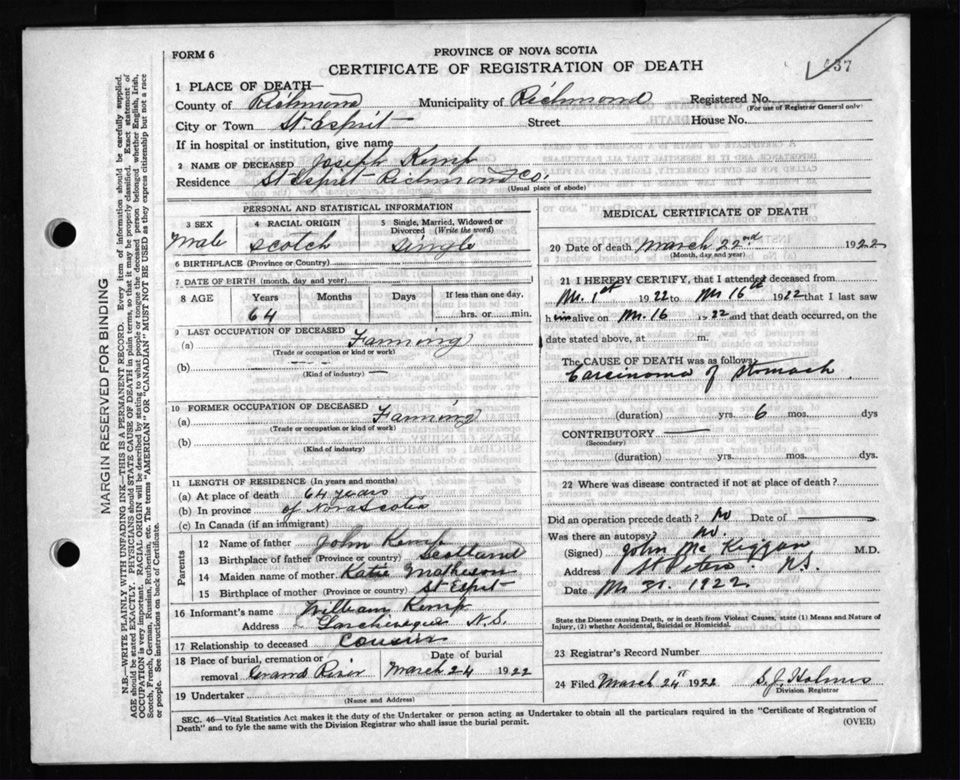 FORM 6
PROVINCE OF NOVA SCOTIA
CERTIFICATE OF REGISTRATION OF DEATH
37
1 PLACE OF DEATH—
County of Richmond Municipality of Richmond Registered No.
(For use of Registrar General only)
City or Town St. Esprit Street House No.
If in hospital or institution, give name
2 NAME OF DECEASED Joseph Kemp
Residence St Esprit Richmond Co.
(Usual place of abode)
PERSONAL AND STATISTICAL INFORMATION
3 SEX 4 RACIAL ORIGIN 5 Single, Married, Widowed or Divorced (Write the word)
Male Scotch Single
6 BIRTHPLACE (Province or Country)
7 DATE OF BIRTH (month, day and year)
8 AGE Years Months Days If less than one day,
64 hrs. or min.
9 LAST OCCUPATION OF DECEASED
(a) Farming
(Trade or occupation or kind or work)
(b) — —
(Kind of industry) —
10 FORMER OCCUPATION OF DECEASED
(a) Farming
(Trade or occupation or kind of work)
(b)
(Kind of industry)
11 LENGTH OF RESIDENCE (In years and months)
(a) At place of death 64 years
(b) In province of Nova Scotia
(c) In Canada (if an immigrant)
Parents
12 Name of father John Kemp
13 Birthplace of father (Province or country) Scotland
14 Maiden name of mother Katie Matheson
15 Birthplace of mother (Province or country) St Esprit
16 Informant's name William Kemp
Address N.S.
17 Relationship to deceased Cousin
18 Place of burial, cremation or removal Grand River Date of burial March 24 1922
19 Undertaker
(Name and Address)
MEDICAL CERTIFICATE OF DEATH
20 Date of death March 22nd 1922
(Month, day and year)
21 I HEREBY CERTIFY, that I attended deceased from
M. 1st 1922 to M 16th 1922 that I last saw
him alive on M. 16 1922 and that death occurred, on the
date stated above, at m.
The CAUSE OF DEATH was as follows
Carcinoma of Stomach
(duration) yrs. 6 mos. dys
CONTRIBUTORY —
(Secondary)
(duration) yrs. mos. dys.
22 Where was disease contracted if not at place of death?
Did an operation precede death? No Date of —
Was there an autopsy? No.
(Signed) John McKiggan M.D.
Address St Peters N.S.
Date M 1922
State the Disease causing Death, or in death from Violent Causes, state (1) Means and Nature of
Injury, (2) whether Accidental, Suicidal or Homicidal.
23 Registrar's Record Number
24 Filed March 24th 1922 S.J. Holmes
Division Registrar
SEC. 46—Vital Statistics Act makes it the duty of the Undertaker or person acting as Undertaker to obtain all the particulars required in the "Certificate of Registration of
Death" and to fyle the same with the Division Registrar who shall issue the burial permit.
(OVER)
MARGIN RESERVED FOR BINDING
N.B.—WRITE PLAINLY WITH UNFADING INK—THIS IS A PERMANENT RECORD. Every item of information should be carefully supplied.
AGE should be stated EXACTLY. PHYSICIANS should STATE CAUSE OF DEATH in plain terms, so that it may be properly classified. Exact statement of
OCCUPATION is very important. RACIAL ORIGIN will be described by stating to what people or tongue the deceased person belonged whether English, Irish,
Scotch, French, German, Russian, Ruthenian, etc. The terms "AMERICAN" OR "CANADIAN" MUST NOT BE USED as they express citizenship but not a race
or people. See instructions on back of Certificate.